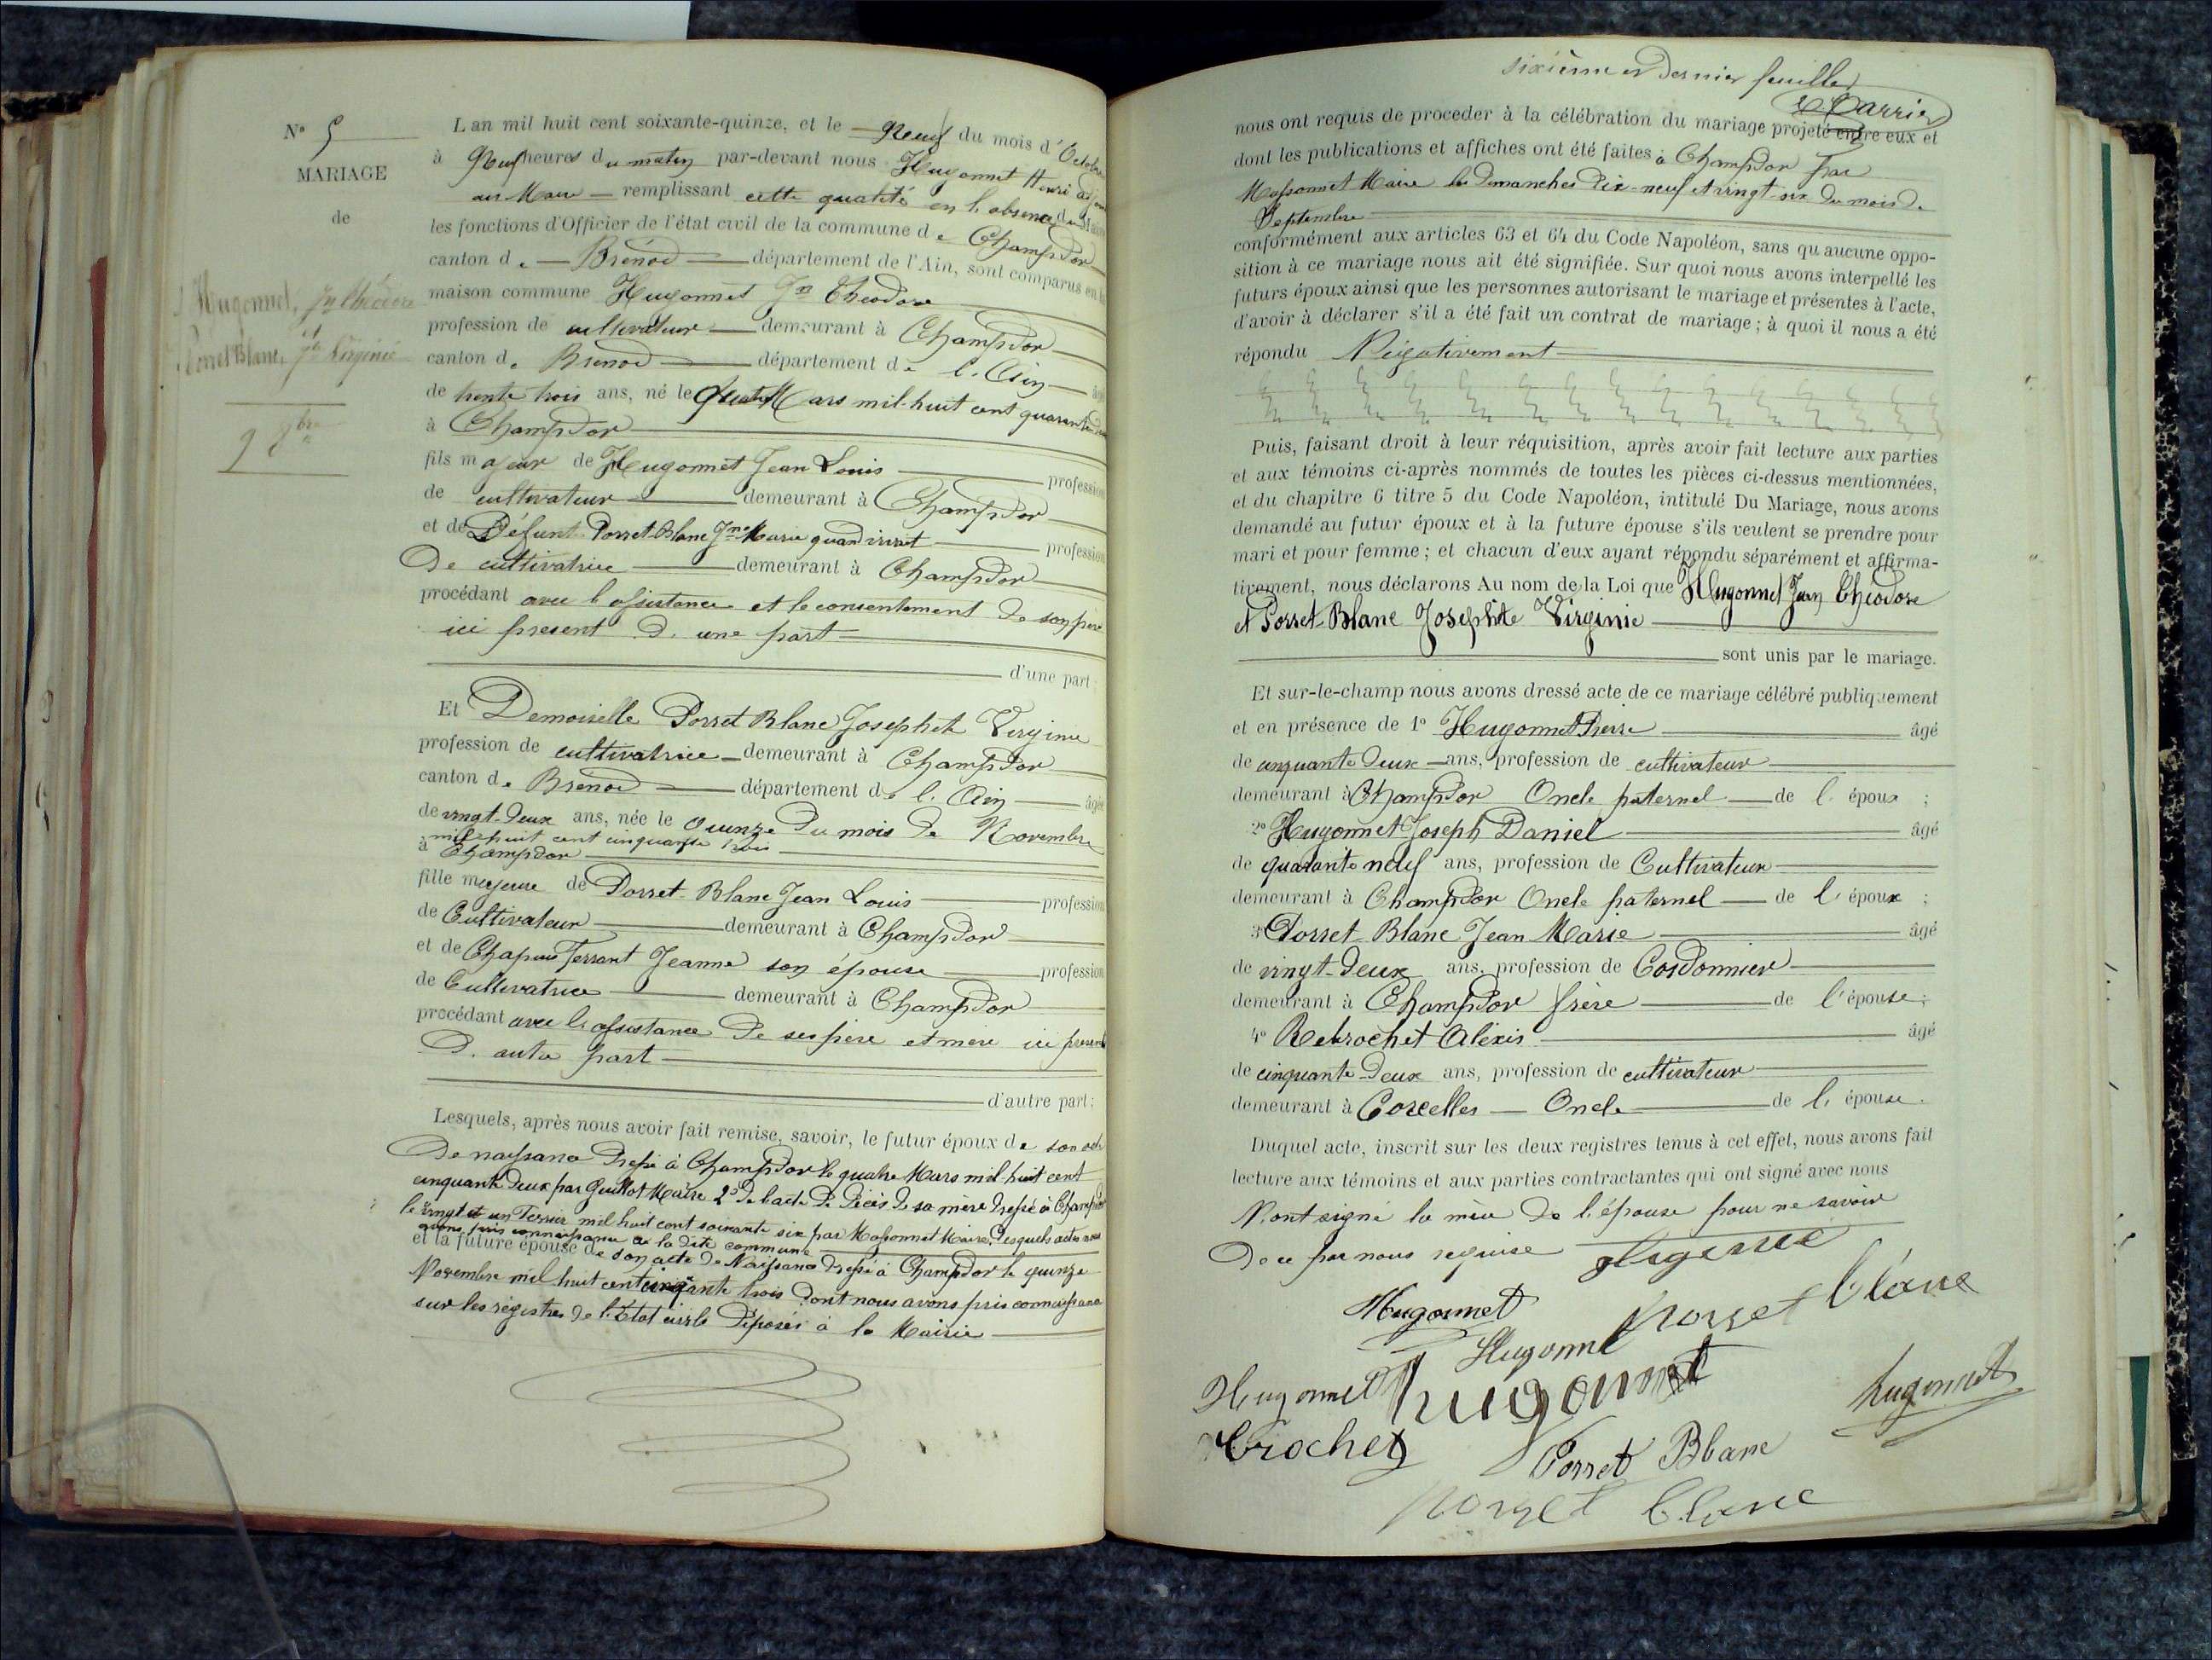 N° 5
MARIAGE
de
Hugonnet, Jn Théodore
et
Porret Blanc, Jte Virginie
9 8bre
L an mil huit cent soixante-quinze, et le Neuf du mois d'Octobre
à Neuf heures du matin par-devant nous Hugonnet Henri adjoint
au Maire remplissant cette qualité en l'absence du Maire
les fonctions d'Officier de l'état civil de la commune de Champdor
canton de Brénod département de l'Ain, sont comparus en la
maison commune Hugonnet Jn Théodore
profession de cultivateur demeurant à Champdor
canton de Brenod département de l'Ain âgé
de trente trois ans, né le Quatre Mars mil-huit cent quarante deux
à Champdor
fils majeur de Hugonnet Jean Louis profession
de cultivateur demeurant à Champdor
et de Défunt Porret-Blanc Jne Marie quand vivait profession
De cultivatrice demeurant à Champdor
procédant avec l'assistance et le consentement de son père
ici present D. une part
d'une part;
Et Demoiselle Porret Blanc Josephte Virginie
profession de cultivatrice demeurant à Champdor
canton de Brénod département de l'Ain âgée
de vingt-deux ans, née le Quinze Du mois de Novembre
mil-huit cent cinquante trois
à Champdor
fille majeure de Porret-Blanc Jean Louis profession
de Cultivateur demeurant à Champdor
et de Chapuis Ferrant Jeanne son épouse profession
de Cultivatrice demeurant à Champdor
procédant avec l'assistance De ses père et mère ici present
D. autre part
d'autre part;
Lesquels, après nous avoir fait remise, savoir, le futur époux de son acte
De naissance Dressé à Champdor le quatre Mars mil-huit cent
cinquante deux par Guillot Maire 2° de l'acte De Décès De sa mère Dressé à Champdor
le vingt et un Fevrier mil huit cent soixante six par Massonnet Maire, Desquels actes nous
avons pris connaissance à la dite commune
et la future épouse de son acte de Naissance Dressé à Champdor le quinze
Novembre mil huit cent cinquante trois Dont nous avons pris connaissance
sur les régistres de l'Etat civils Déposés à la Mairie
sixième et Dernier feuille
E. Carrier
nous ont requis de proceder à la célébration du mariage projeté entre eux et
dont les publications et affiches ont été faites à Champdor par
Massonnet Maire les Dimanches Dix-neuf et vingt-six Du mois de
Septembre
conformément aux articles 63 et 64 du Code Napoléon, sans qu aucune oppo-
sition à ce mariage nous ait été signifiée. Sur quoi nous avons interpellé les
futurs époux ainsi que les personnes autorisant le mariage et présentes à l'acte,
d'avoir à déclarer s'il a été fait un contrat de mariage; à quoi il nous a été
répondu Négativement
Puis, faisant droit à leur réquisition, après avoir fait lecture aux parties
et aux témoins ci-après nommés de toutes les pièces ci-dessus mentionnées,
et du chapitre 6 titre 5 du Code Napoléon, intitulé Du Mariage, nous avons
demandé au futur époux et à la future épouse s'ils veulent se prendre pour
mari et pour femme; et chacun d'eux ayant répondu séparément et affirma-
tivement, nous déclarons Au nom de la Loi que Hugonnet Jean Théodore
et Porret-Blanc Josephte Virginie
sont unis par le mariage.
Et sur-le-champ nous avons dressé acte de ce mariage célébré publiquement
et en présence de 1° Hugonnet Pierre âgé
de cinquante Deux ans, profession de cultivateur
demeurant à Champdor Oncle paternel de l'époux ;
2° Hugonnet Joseph Daniel âgé
de quarante neuf ans, profession de Cultivateur
demeurant à Champdor Oncle paternel de l'époux ;
3° Porret Blanc Jean Marie âgé
de vingt-Deux ans, profession de Cordonnier
demeurant à Champdor frère de l'épouse;
4° Retrochet Alexis âgé
de cinquante-Deux ans, profession de cultivateur
demeurant à Corcelles Oncle de l'épouse.
Duquel acte, inscrit sur les deux registres tenus à cet effet, nous avons fait
lecture aux témoins et aux parties contractantes qui ont signé avec nous
N'ont signé la mère De l'épouse pour ne savoir
De ce par nous requise
Hugonnet
porret blanc
Hugonnet
Hugonnet
hugonnet
hugonnet
Crochet
Porret Blanc
porret blanc